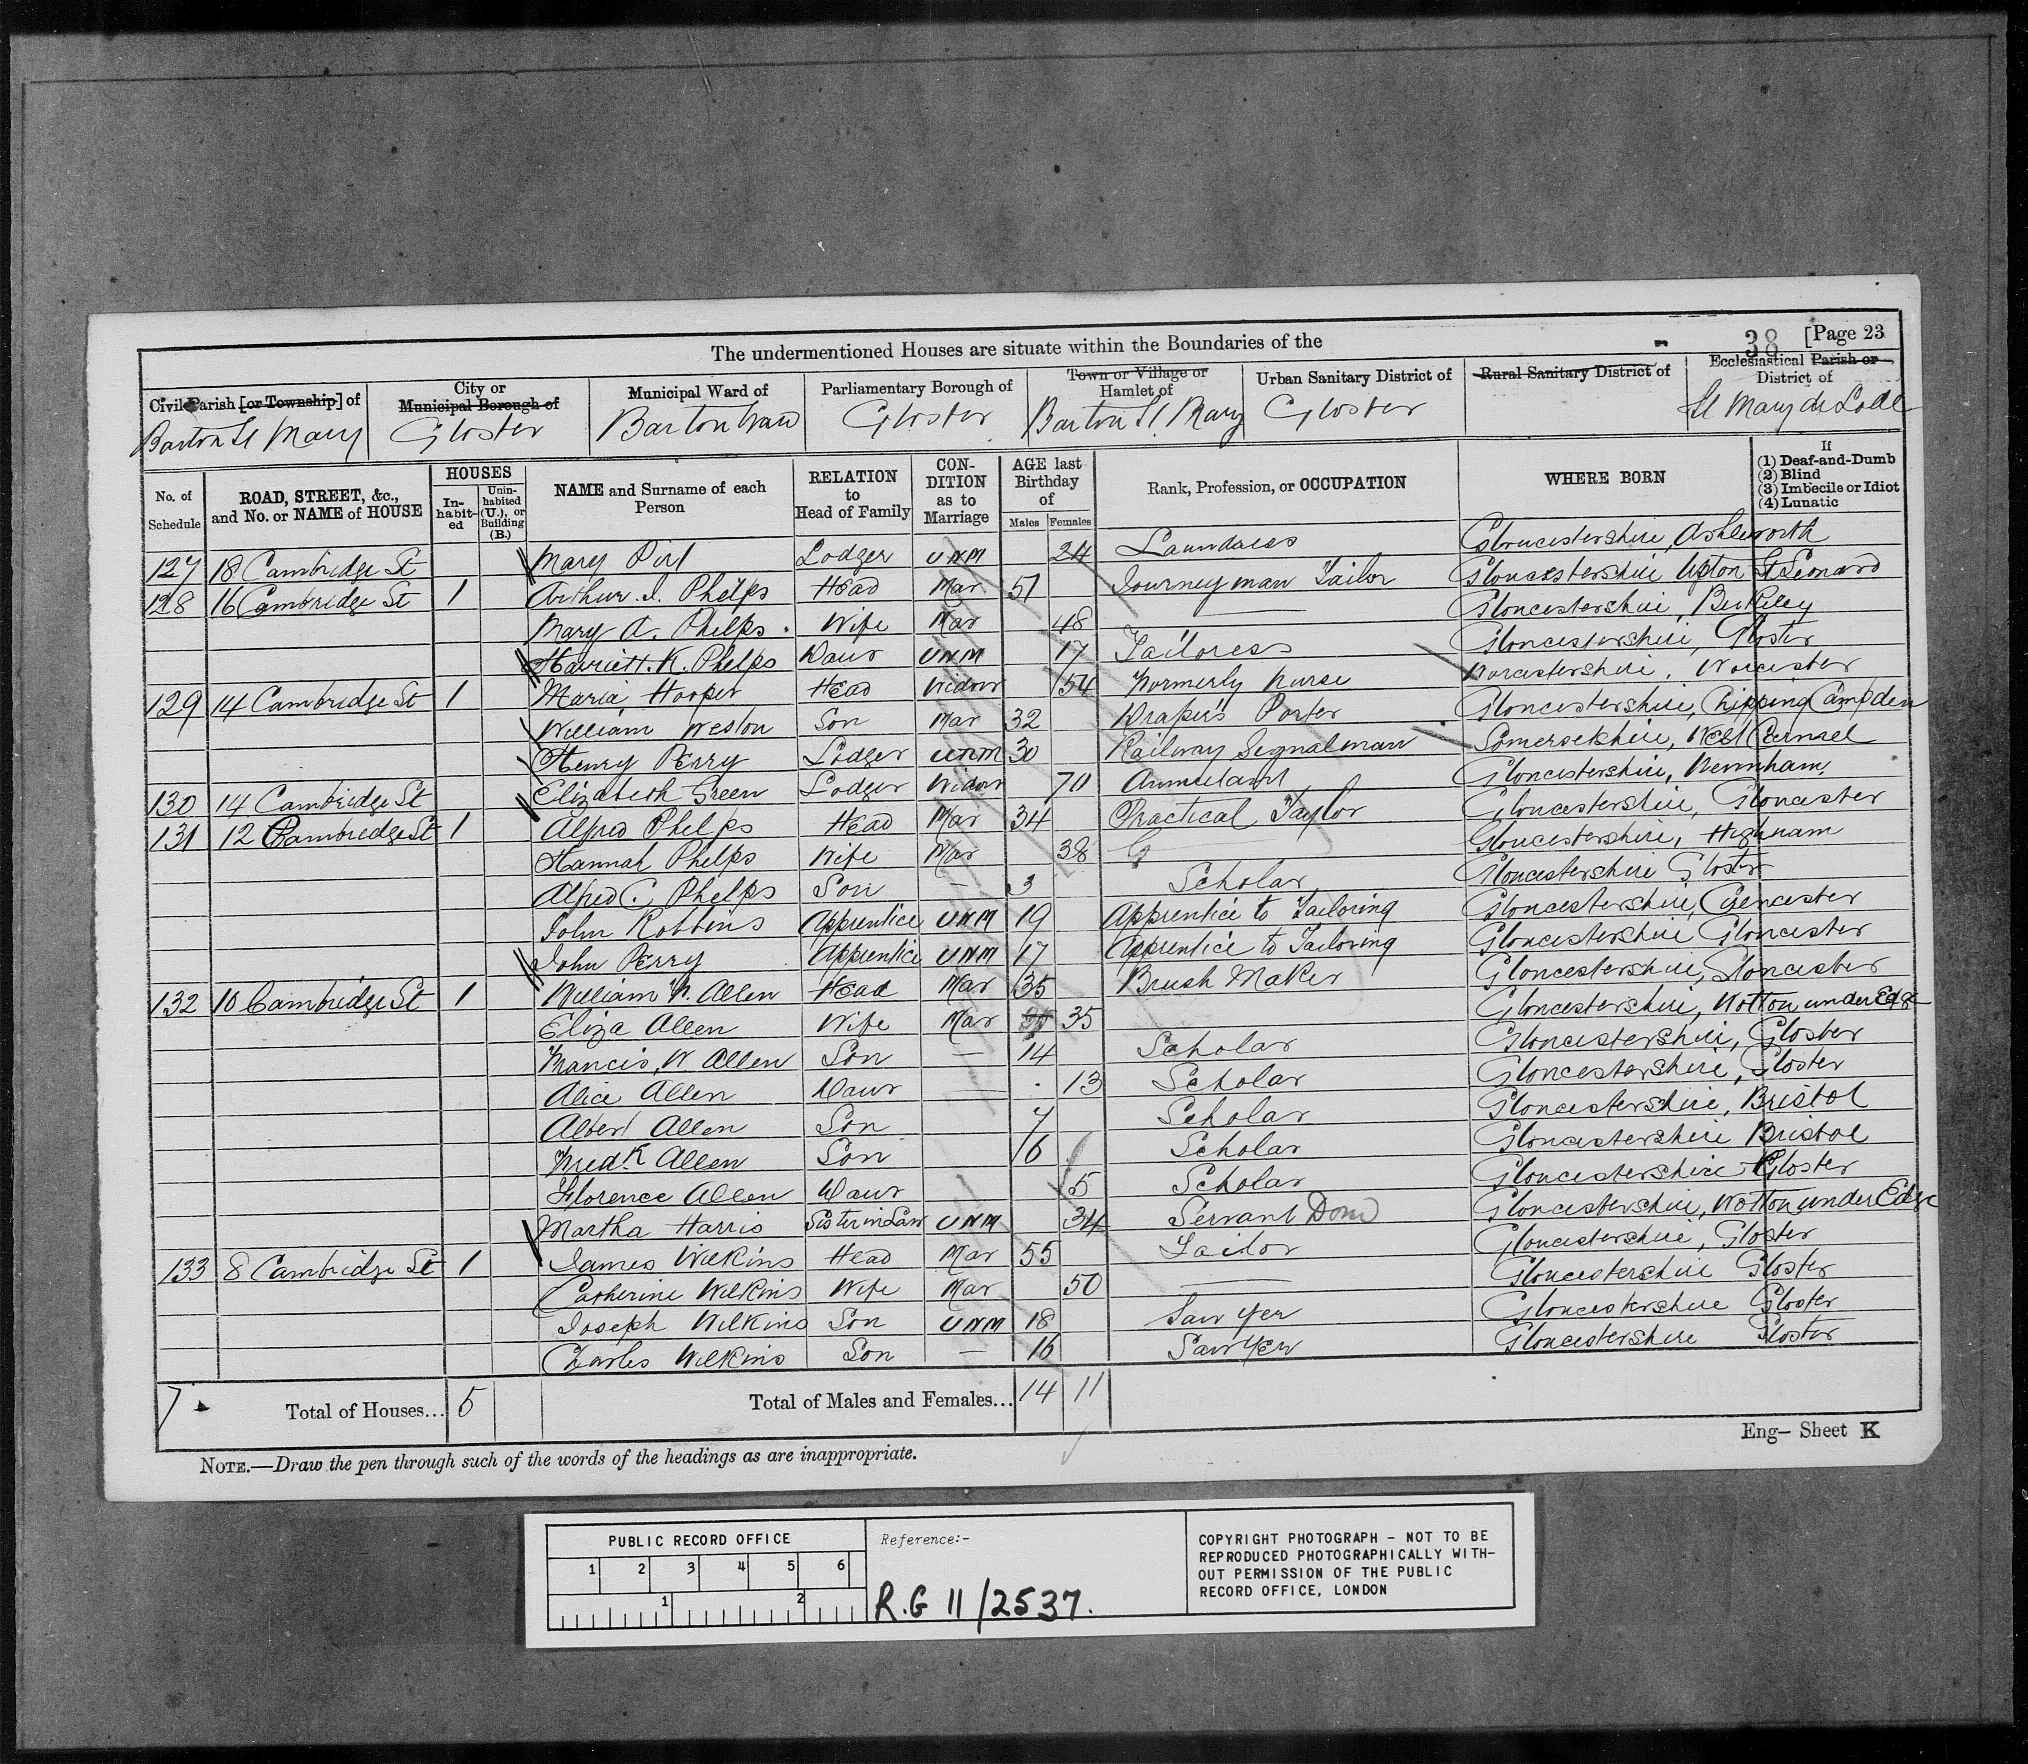 The undermentioned Houses are situate within the Boundaries of the 38 [Page 23
Civil Parish [or Township] of City or Municipal Borough of Municipal Ward of Parliamentary Borough of Town or Village or Hamlet of Urban Sanitary District of Rural Sanitary District of Ecclesiastical Parish or District of
Barton St Mary Gloster Barton Ward Gloster Barton St. Mary Gloster St Mary de Lode
No. of Schedule ROAD, STREET, &c., and No. or NAME of HOUSE HOUSES In-habit-ed Unin-habited (U.), or Building (B.) NAME and Surname of each Person RELATION to Head of Family CON-DITION as to Marriage AGE last Birthday of Males Females Rank, Profession, or OCCUPATION WHERE BORN If (1) Deaf-and-Dumb (2) Blind (3) Imbecile or Idiot (4) Lunatic
127 18 Cambridge St Mary Lodger UNM 24 Laundress Gloucestershire, Ashleworth
128 16 Cambridge St 1 Arthur. J. Phelps Head Mar 51 Journeyman Tailor Gloucestershire Upton St Leonard
Mary A. Phelps. Wife Mar 48 — Gloucestershire, Berkeley
Harriett. K. Phelps Daur UNM 17 Tailoress Gloucestershire, Gloster
129 14 Cambridge St 1 Maria Hooper Head Widow 54 Formerly Nurse Worcestershire, Worcester
William Weston Son Mar 32 Draper's Porter Gloucestershire, Chipping Campden
Henry Perry Lodger UNM 30 Railway Signalman Somersetshire, West
130 14 Cambridge St Elizabeth Green Lodger Widow 70 Annuitant Gloucestershire,
131 12 Cambridge St 1 Alfred Phelps Head Mar 34 Practical Taylor Gloucestershire, Gloucester
Hannah Phelps Wife Mar 38 Gloucestershire, Highnam
Alfred C. Phelps Son — 3 Scholar Gloucestershire Gloster
John Robbins Apprentice UNM 19 Apprentice to Tailoring Gloucestershire, Cirencester
John Perry Apprentice UNM 17 Apprentice to Tailoring Gloucestershire Gloucester
132 10 Cambridge St 1 William N. Allen Head Mar 35 Brush Maker Gloucestershire, Gloucester
Eliza Allen Wife Mar 35 Gloucestershire, Wotton under Edge
Francis, W Allen Son — 14 Scholar Gloucestershire, Gloster
Alice Allen Daur 13 Scholar Gloucestershire, Gloster
Albert Allen Son 7 Scholar Gloucestershire, Bristol
Fredk Allen Son 6 Scholar Gloucestershire Bristol
Florence Allen Daur 5 Scholar Gloucestershire Gloster
Martha Harris Sister in Law UNM 34 Servant Dom Gloucestershire, Wotton under Edge
133 8 Cambridge St 1 James Wilkins Head Mar 55 Tailor Gloucestershire, Gloster
Catherine Wilkins Wife Mar 50 — Gloucestershire Gloster
Joseph Wilkins Son UNM 18 Sawyer Gloucestershire Gloster
Charles Wilkins Son — 16 Sawyer Gloucestershire Gloster
Total of Houses... 5 Total of Males and Females... 14 11
Eng— Sheet K
NOTE.—Draw the pen through such of the words of the headings as are inappropriate.
PUBLIC RECORD OFFICE
1 2 3 4 5 6
1 2
Reference:-
R.G 11/2537.
COPYRIGHT PHOTOGRAPH - NOT TO BE
REPRODUCED PHOTOGRAPHICALLY WITH-
OUT PERMISSION OF THE PUBLIC
RECORD OFFICE, LONDON